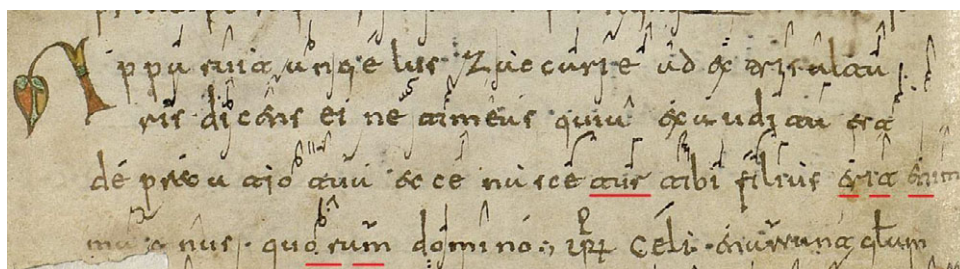 Apparuit angelus Zaccarie ad extris alta
ris dicens ei ne timeas quia exaudita est
deprecatio tua ecce nascetur tibi filius erit enim
magnus quorum domino Celi enarrant glm